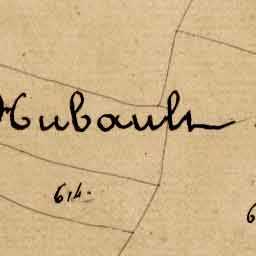 Hubault
614.
6